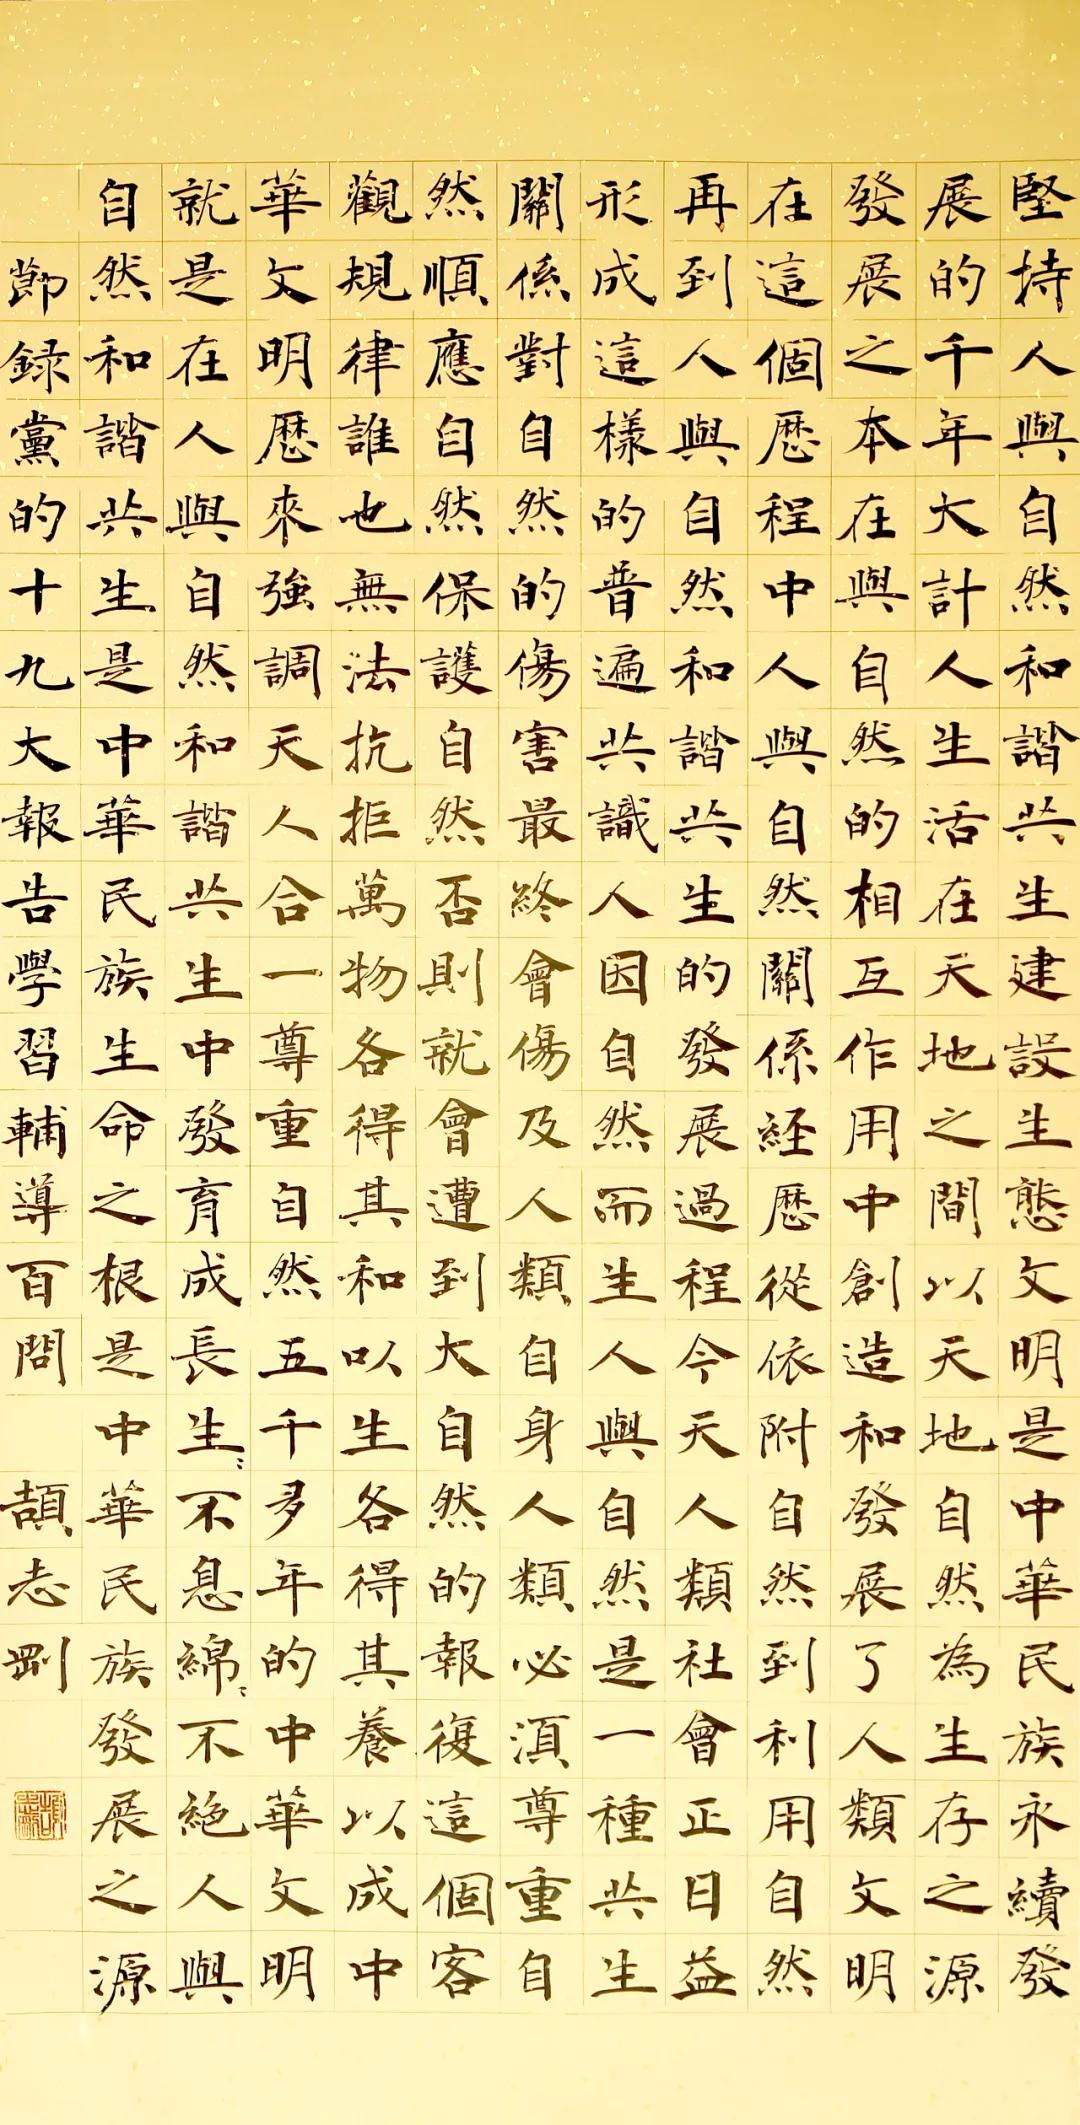 堅持人與自然和諧共生建設生態文明是中華民族永續發
展的千年大計人生活在天地之間以天地自然為生存之源
發展之本在與自然的相互作用中創造和發展了人類文明
在這個歷程中人與自然關係經歷從依附自然到利用自然
再到人與自然和諧共生的發展過程今天人類社會正日益
形成這樣的普遍共識人因自然而生人與自然是一種共生
關係對自然的傷害最終會傷及人類自身人類必須尊重自
然順應自然保護自然否則就會遭到大自然的報復這個客
觀規律誰也無法抗拒萬物各得其和以生各得其養以成中
華文明歷來強調天人合一尊重自然五千多年的中華文明
就是在人與自然和諧共生中發育成長生〻不息綿〻不絕人與
自然和諧共生是中華民族生命之根是中華民族發展之源
節録黨的十九大報告學習輔導百問 頡志剛